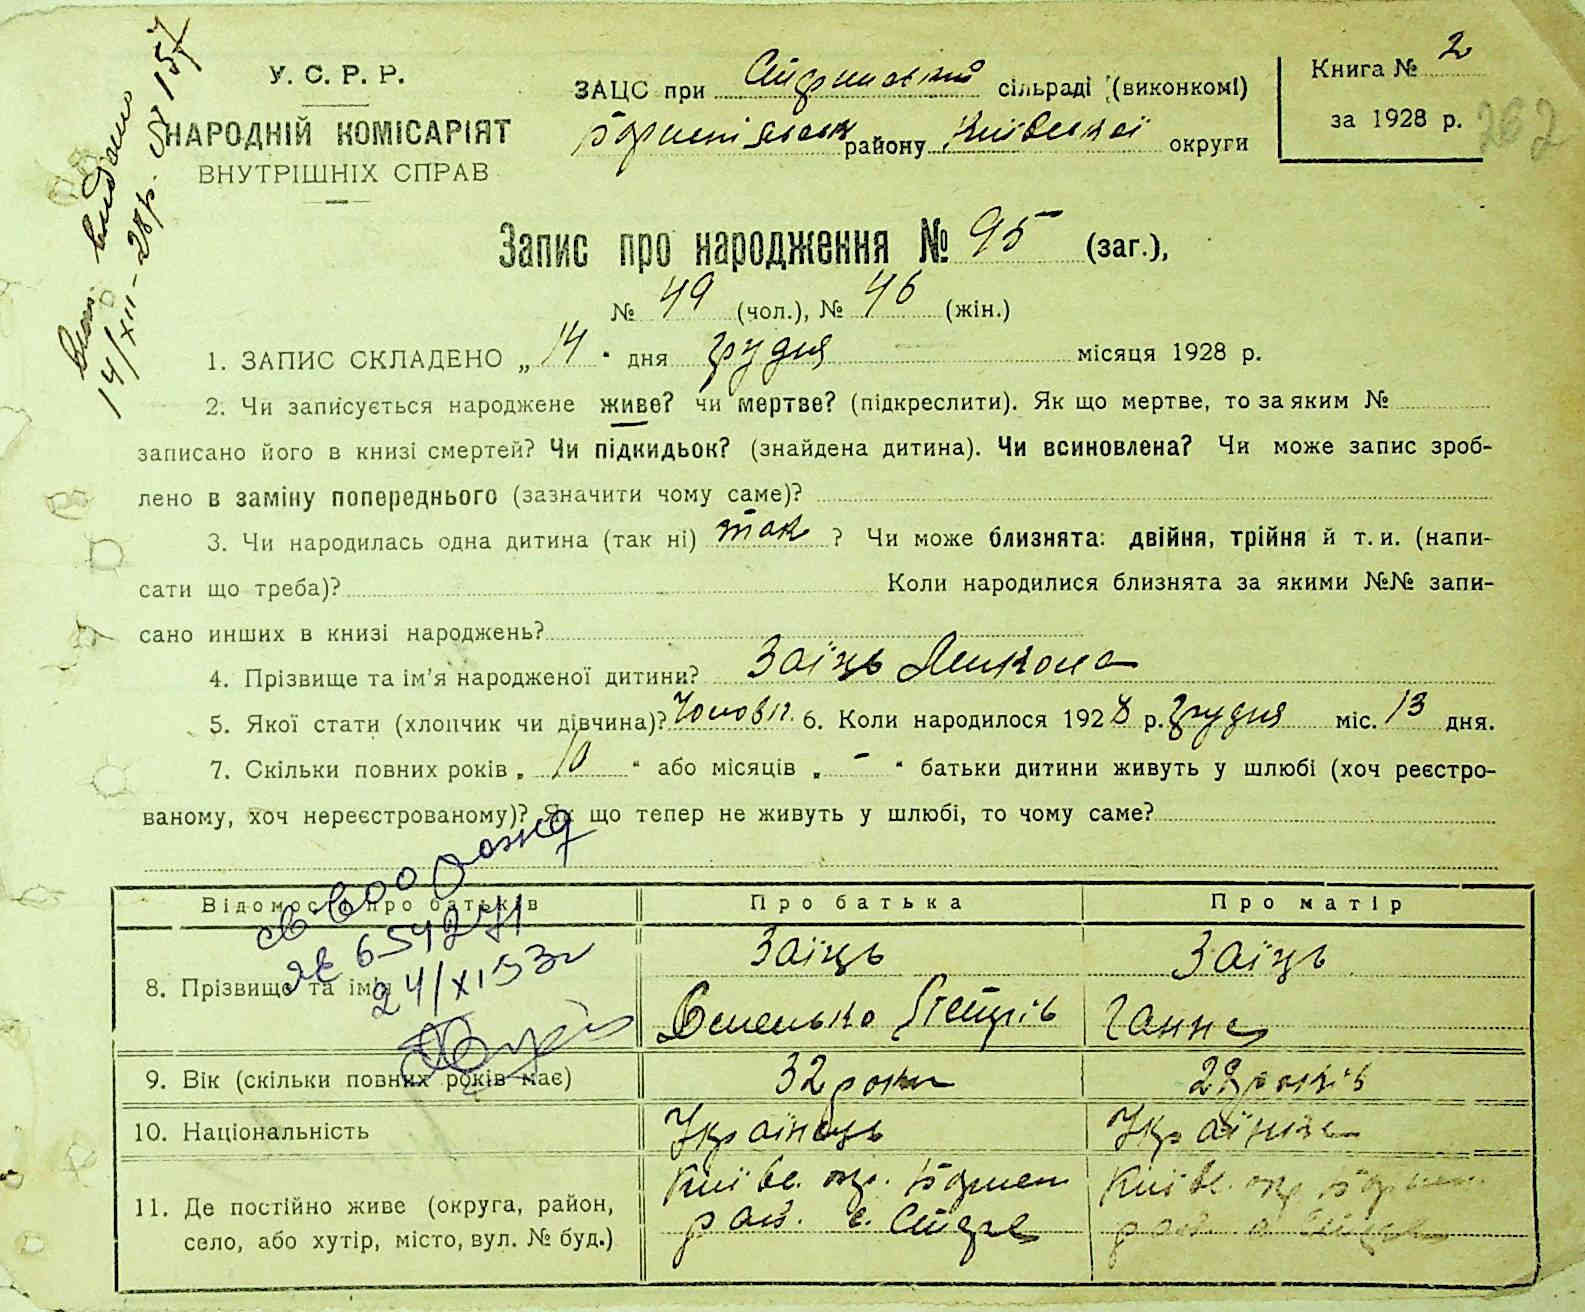 вип. видано
14/XII-28р. № 157
У. С. Р. Р.
НАРОДНІЙ КОМІСАРІЯТ
ВНУТРІШНІХ СПРАВ
ЗАЦС при сільраді (виконкомі)
району Київської округи
Книга № 2
за 1928 р.
262
Запис про народження № 95 (заг.),
№ 49 (чол.), № 46 (жін.)
1. ЗАПИС СКЛАДЕНО „ 14 " дня грудня місяця 1928 р.
2. Чи записується народжене живе? чи мертве? (підкреслити). Як що мертве, то за яким №
записано його в книзі смертей? Чи підкидьок? (знайдена дитина). Чи всиновлена? Чи може запис зроб-
лено в заміну попереднього (зазначити чому саме)?
3. Чи народилась одна дитина (так ні) так ? Чи може близнята: двійня, трійня й т. и. (напи-
сати що треба)? Коли народилися близнята за якими №№ запи-
сано инших в книзі народжень?
4. Прізвище та ім'я народженої дитини? Заїць Микола
5. Якої стати (хлопчик чи дівчина)? Чоловіч. 6. Коли народилося 1928 р. грудня міс. 13 дня.
7. Скільки повних років „ 10 " або місяців „ - " батьки дитини живуть у шлюбі (хоч реєстро-
ваному, хоч нереєстрованому)? Як що тепер не живуть у шлюбі, то чому саме?
Відомості про батьків Про батька Про матір
св-во о рожд
№ 654271
24/XI 53г
8. Прізвище та імя Заїць Заїць
Петрів Ганна
9. Вік (скільки повних років має) 32 роки 28 років
10. Національність Українець Українка
11. Де постійно живе (округа, район, Київс. окр. Київс. окр
село, або хутір, місто, вул. № буд.) рай. с. рай. с